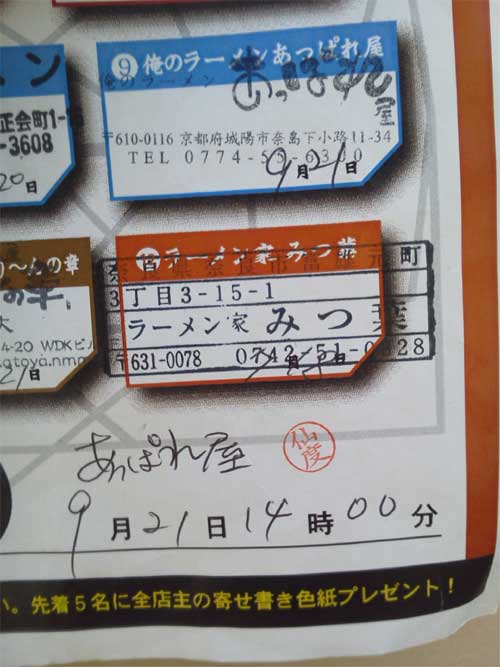 ン
正会町1-1
-3608
20日
⑨俺のラーメンあっぱれ屋
俺のラーメン あっぱれ屋
〒610-0116 京都府城陽市奈島下小路11-34
TEL 0774-55-6300
9月21日
り〜んの章
の章
4-20 WDKビル
atoya.nmp
21日
ラーメン家 みつ葉
町
3丁目3-15-1
ラーメン家 みつ葉
〒631-0078 0742-51-0828
月 日
あっぱれ屋
9月21日14時00分
い。先着5名に全店主の寄せ書き色紙プレゼント!